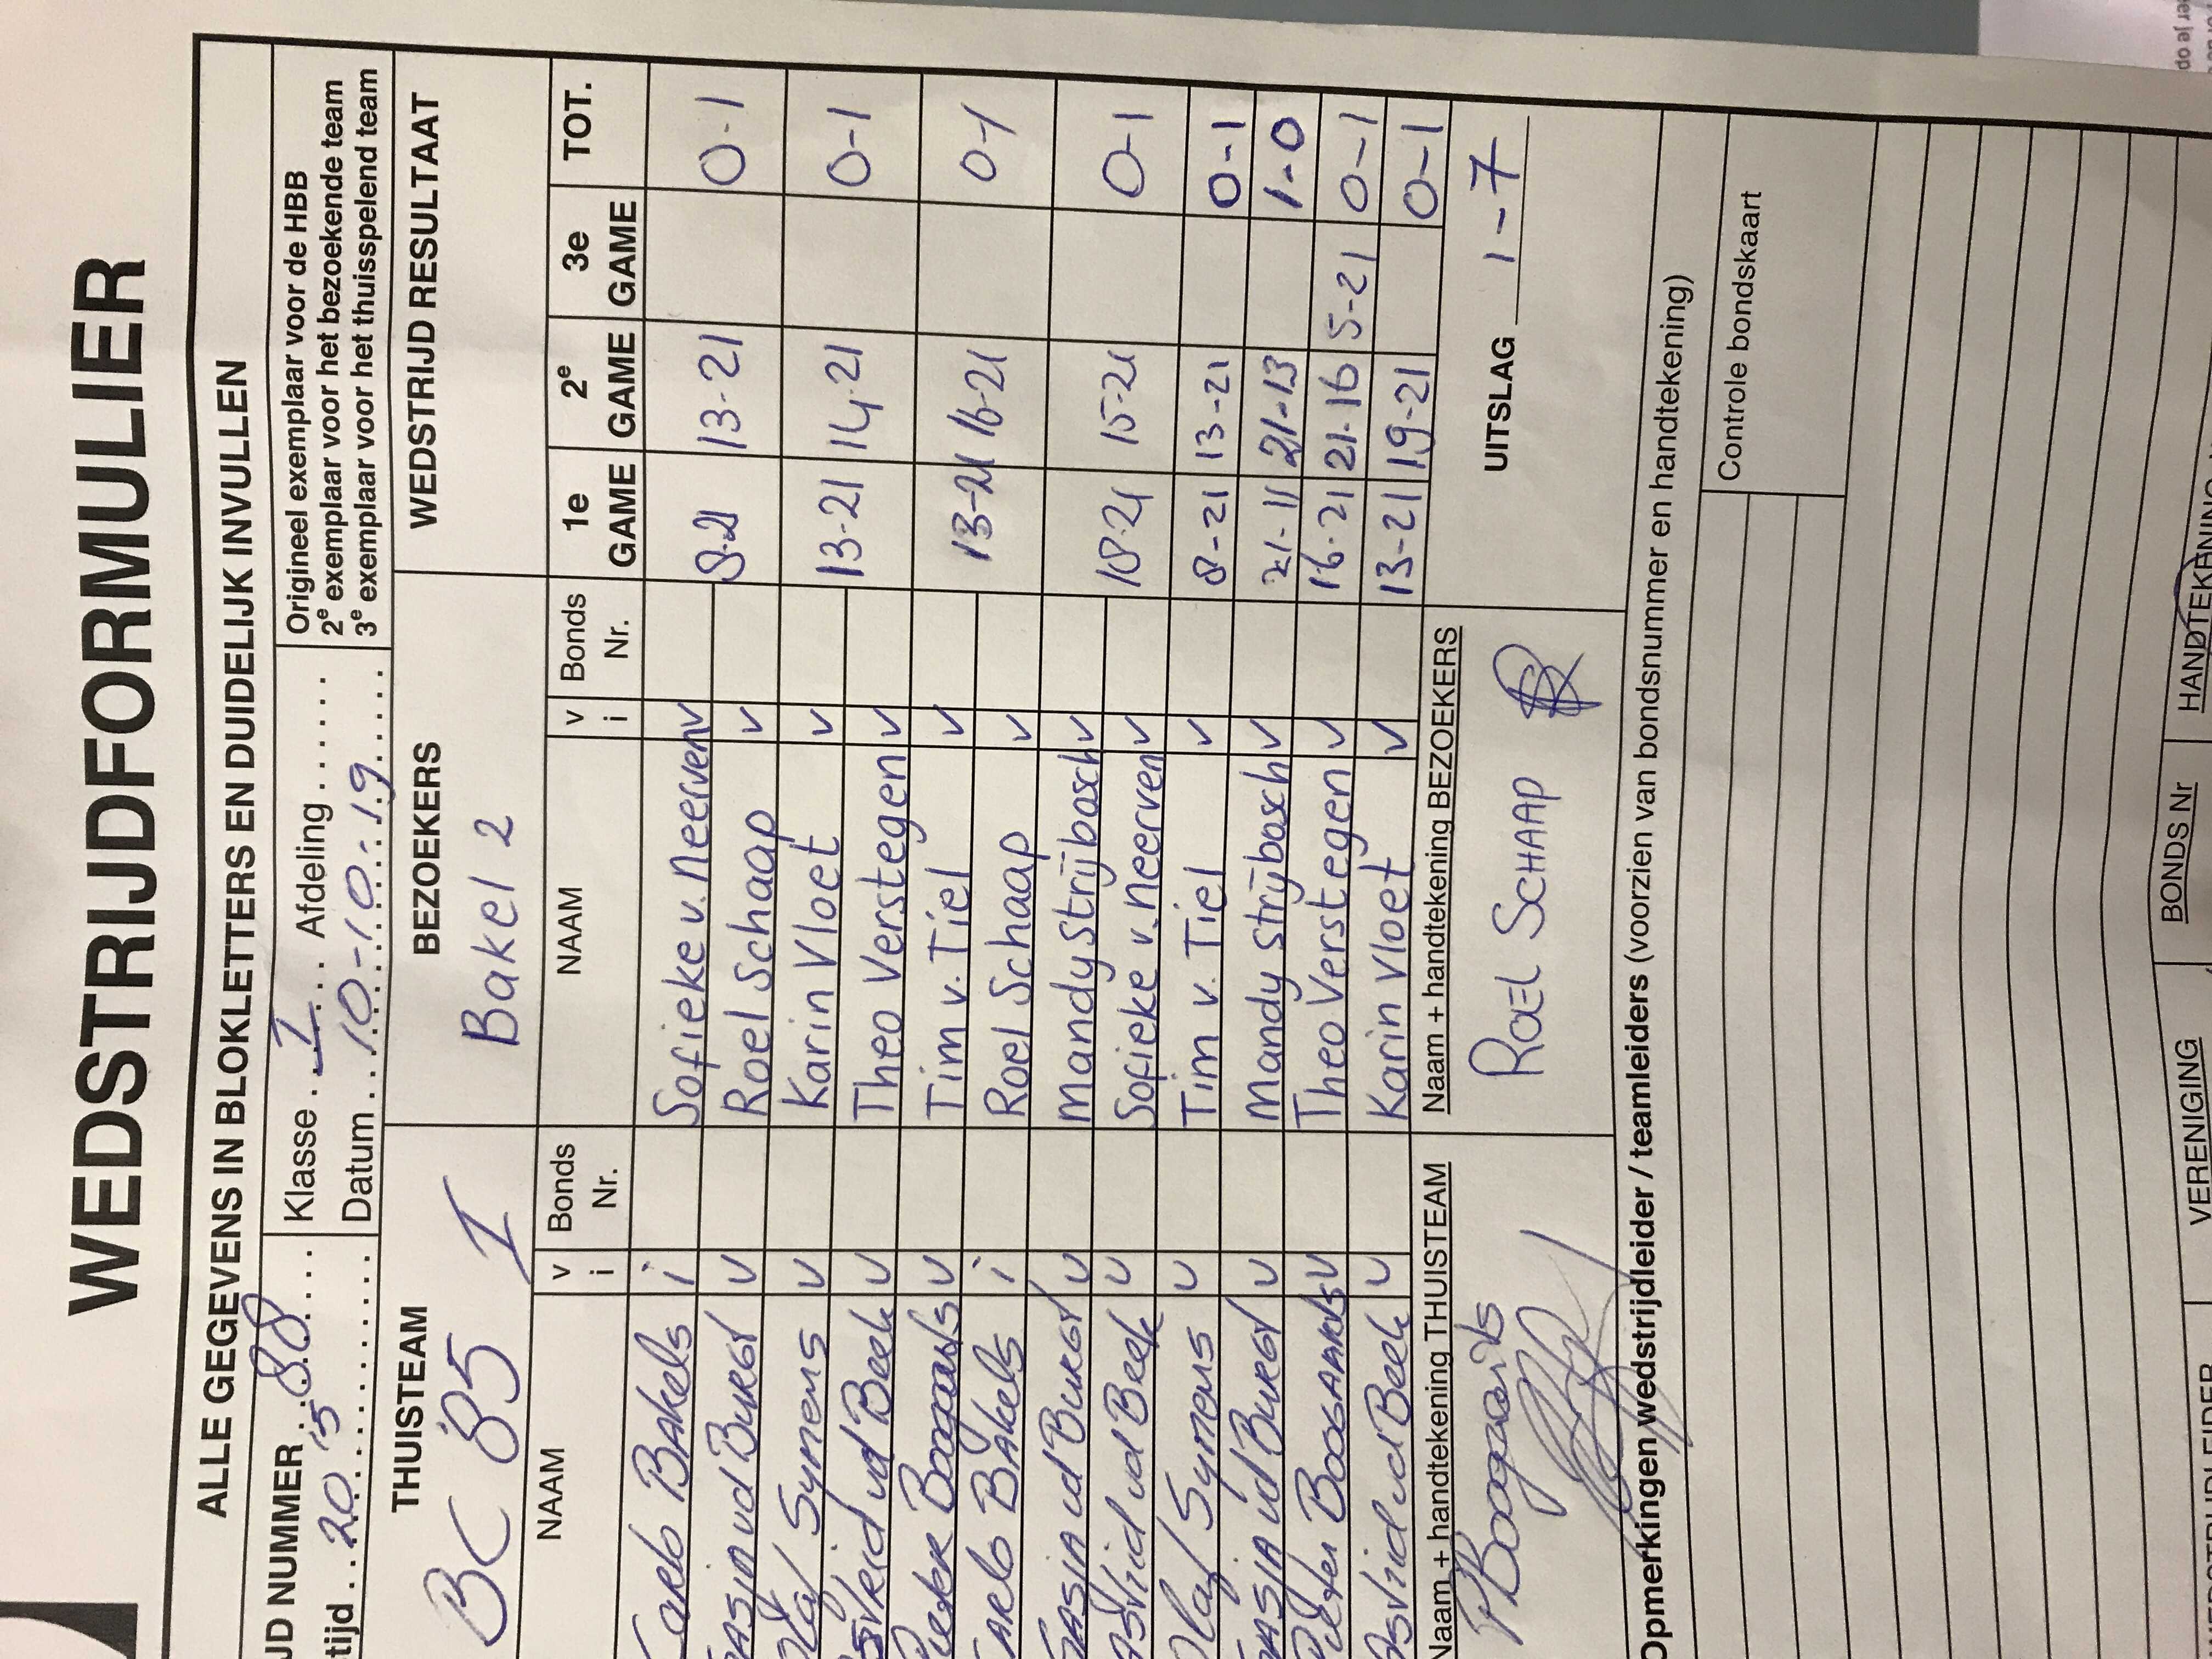 WEDSTRIJDFORMULIER
ALLE GEGEVENS IN BLOKLETTERS EN DUIDELIJK INVULLEN
JD NUMMER 88 Klasse I Afdeling
tijd 20 15 Datum 10-10-19
Origineel exemplaar voor de HBB
2e exemplaar voor het bezoekende team
3e exemplaar voor het thuisspelend team
THUISTEAM BEZOEKERS WEDSTRIJD RESULTAAT
BC '85 I Bakel 2
NAAM v i Bonds Nr. NAAM v i Bonds Nr. 1e GAME 2e GAME 3e GAME TOT.
Carlo Bakels i Sofieke v. Neerven v
vd Burgt v Roel Schaap v 8-21 13-21 0-1
Olaf Symens v Karin Vloet v
Astrid vd Beek v Theo Verstegen v 13-21 14-21 0-1
Pieter Bogaards v Tim v. Tiel v
Carlo Bakels i Roel Schaap v 13-21 16-21 0-1
vd Burgt v Mandy Strijbosch v
Astrid vd Beek v Sofieke v. Neerven v 18-21 15-21 0-1
Olaf Symens v Tim v. Tiel v 8-21 13-21 0-1
vd Burgt v Mandy Strijbosch v 21-11 21-13 1-0
Pieter Boogaards v Theo Verstegen v 16-21 21-16 5-21 0-1
Astrid vd Beek v Karin Vloet v 13-21 19-21 0-1
Naam + handtekening THUISTEAM Naam + handtekening BEZOEKERS UITSLAG 1-7
P Boogaards ROEL SCHAAP
Opmerkingen wedstrijdleider / teamleiders (voorzien van bondsnummer en handtekening)
Controle bondskaart
VERENIGING BONDS Nr